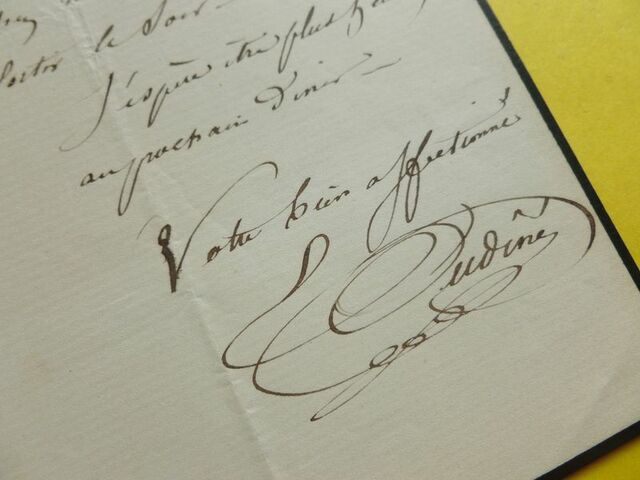 sortir le soir –
J'espère être plus h
au prochain diner –
Votre bien affectionné
E Oudiné